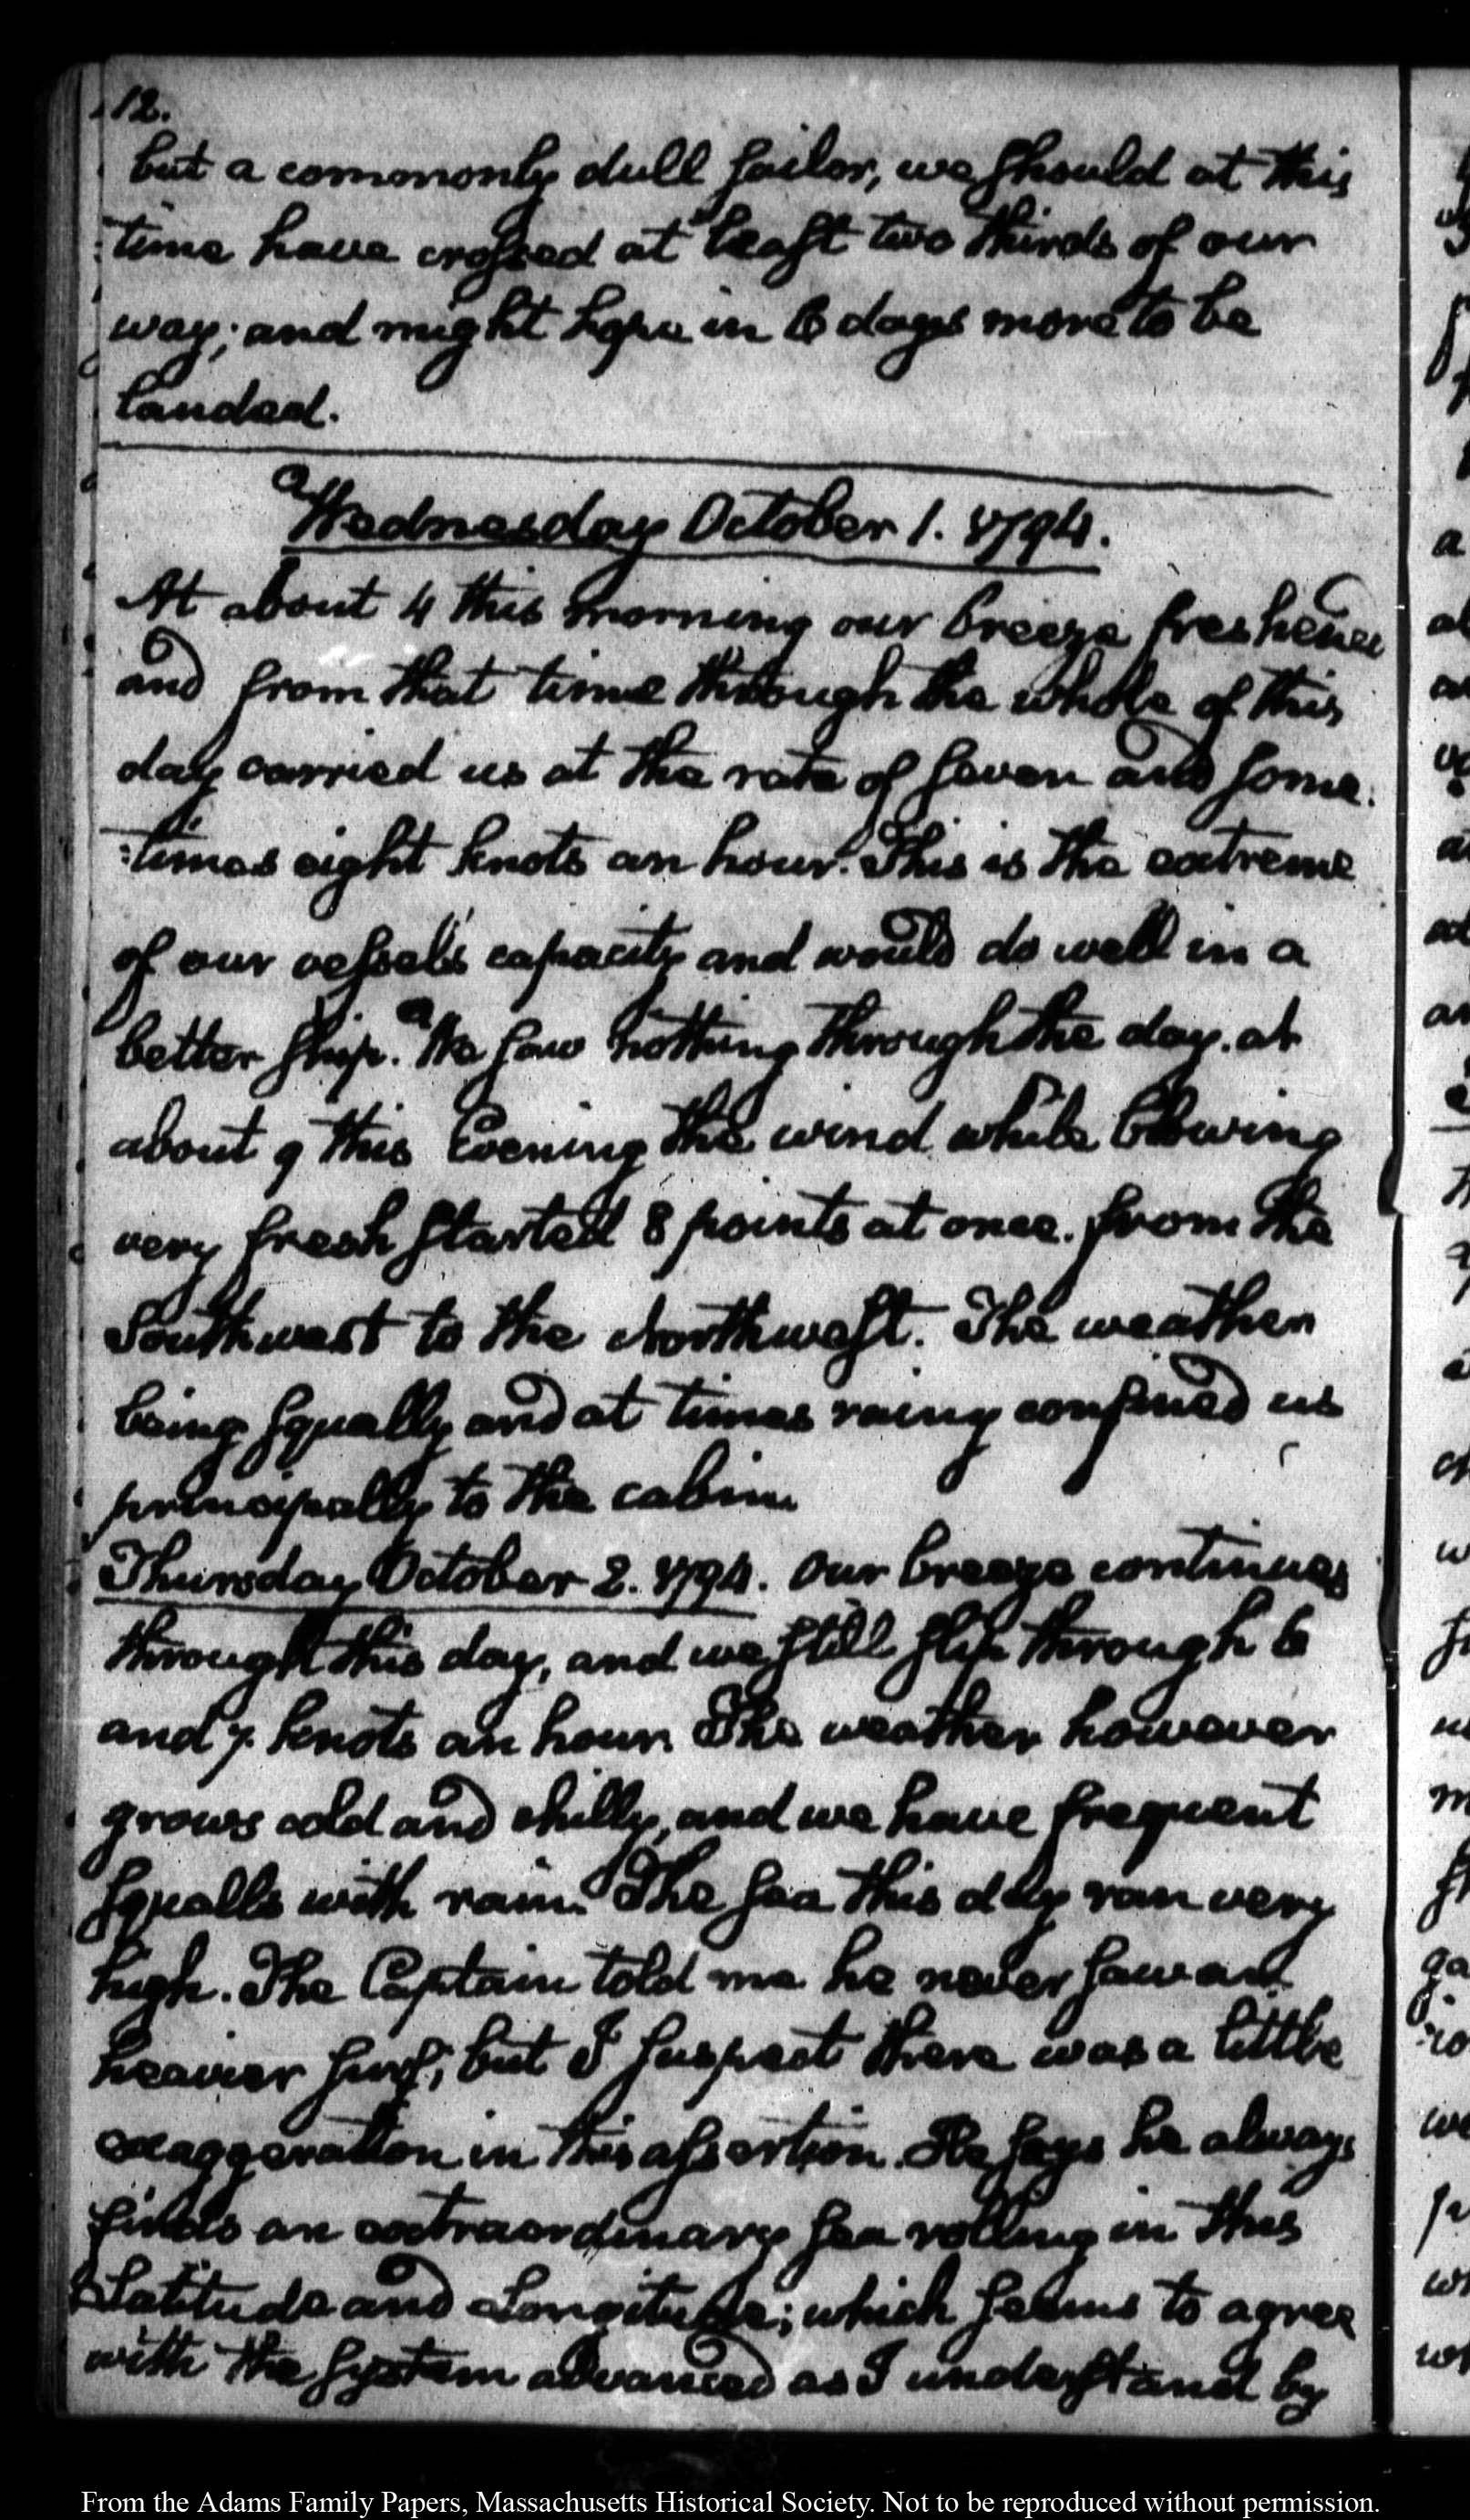 12.
but a commonly dull sailor, we should at this
time have crossed at least two thirds of our
way; and might hope in 6 days more to be
landed.
Wednesday October 1. 1794.
At about 4 this morning our breeze freshened
and from that time through the whole of this
day carried us at the rate of seven and some-
-times eight knots an hour. This is the extreme
of our vessel's capacity and would do well in a
better ship. We saw nothing through the day. at
about 9 this Evening the wind while blowing
very fresh started 8 points at once. from the
Southwest to the Northwest. The weather
being squally and at times rainy confined us
principally to the cabin.
Thursday October 2. 1794. Our breeze continues
through this day, and we still slip through 6
and 7. knots an hour. The weather however
grows cold and chilly, and we have frequent
squalls with rain. The sea this day ran very
high. The Captain told me he never saw an
heavier surf; but I suspect there was a little
exaggeration in this assertion. He says he always
finds an extraordinary sea rolling in this
Latitude and Longitude; which seems to agree
with the system advanced as I understand by
From the Adams Family Papers, Massachusetts Historical Society. Not to be reproduced without permission.